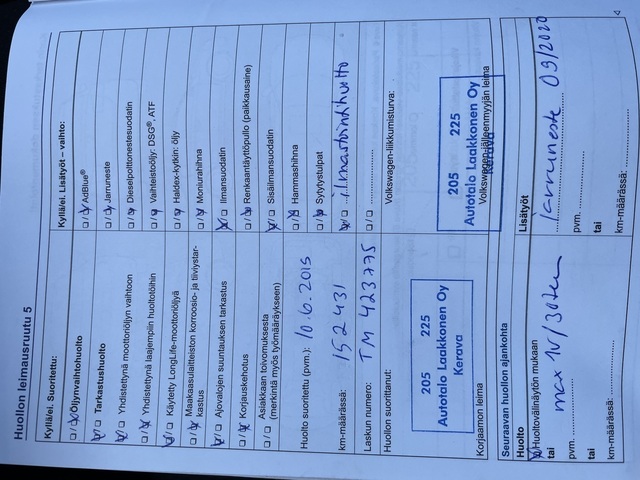 Huollon leimausruutu 5
Kyllä/ei. Suoritettu:
Öljynvaihtohuolto
Tarkastushuolto
Yhdistettynä moottoriöljyn vaihtoon
Yhdistettynä laajempiin huoltotöihin
Käytetty LongLife-moottoriöljyä
Maakaasulaitteiston korroosio- ja tiiviystar-
kastus
Ajovalojen suuntauksen tarkastus
Korjauskehotus
Asiakkaan toivomuksesta
(merkintä myös työmääräykseen)
Huolto suoritettu (pvm.): 10.6.2015
km-määrässä: 152 431
Laskun numero: TM 423775
Huollon suorittanut:
205 225
Autotalo Laakkonen Oy
Kerava
Korjaamon leima
Kyllä/ei. Lisätyöt – vaihto:
AdBlue®
Jarruneste
Dieselpolttonestesuodatin
Vaihteistoöljy: DSG®, ATF
Haldex-kytkin: öljy
Moniurahihna
Ilmansuodatin
Renkaantäyttöpullo (paikkausaine)
Sisäilmansuodatin
Hammashihna
Sytytystulpat
ilmastointihuolto
Volkswagen-liikkumisturva:
205 225
Autotalo Laakkonen Oy
Kerava
Volkswagen-jälleenmyyjän leima
Seuraavan huollon ajankohta
Huolto
Huoltovälinäytön mukaan
tai max 1V/30tkm
pvm.
tai
km-määrässä:
Lisätyöt
Jarruneste 09/2020
pvm.
tai
km-määrässä: